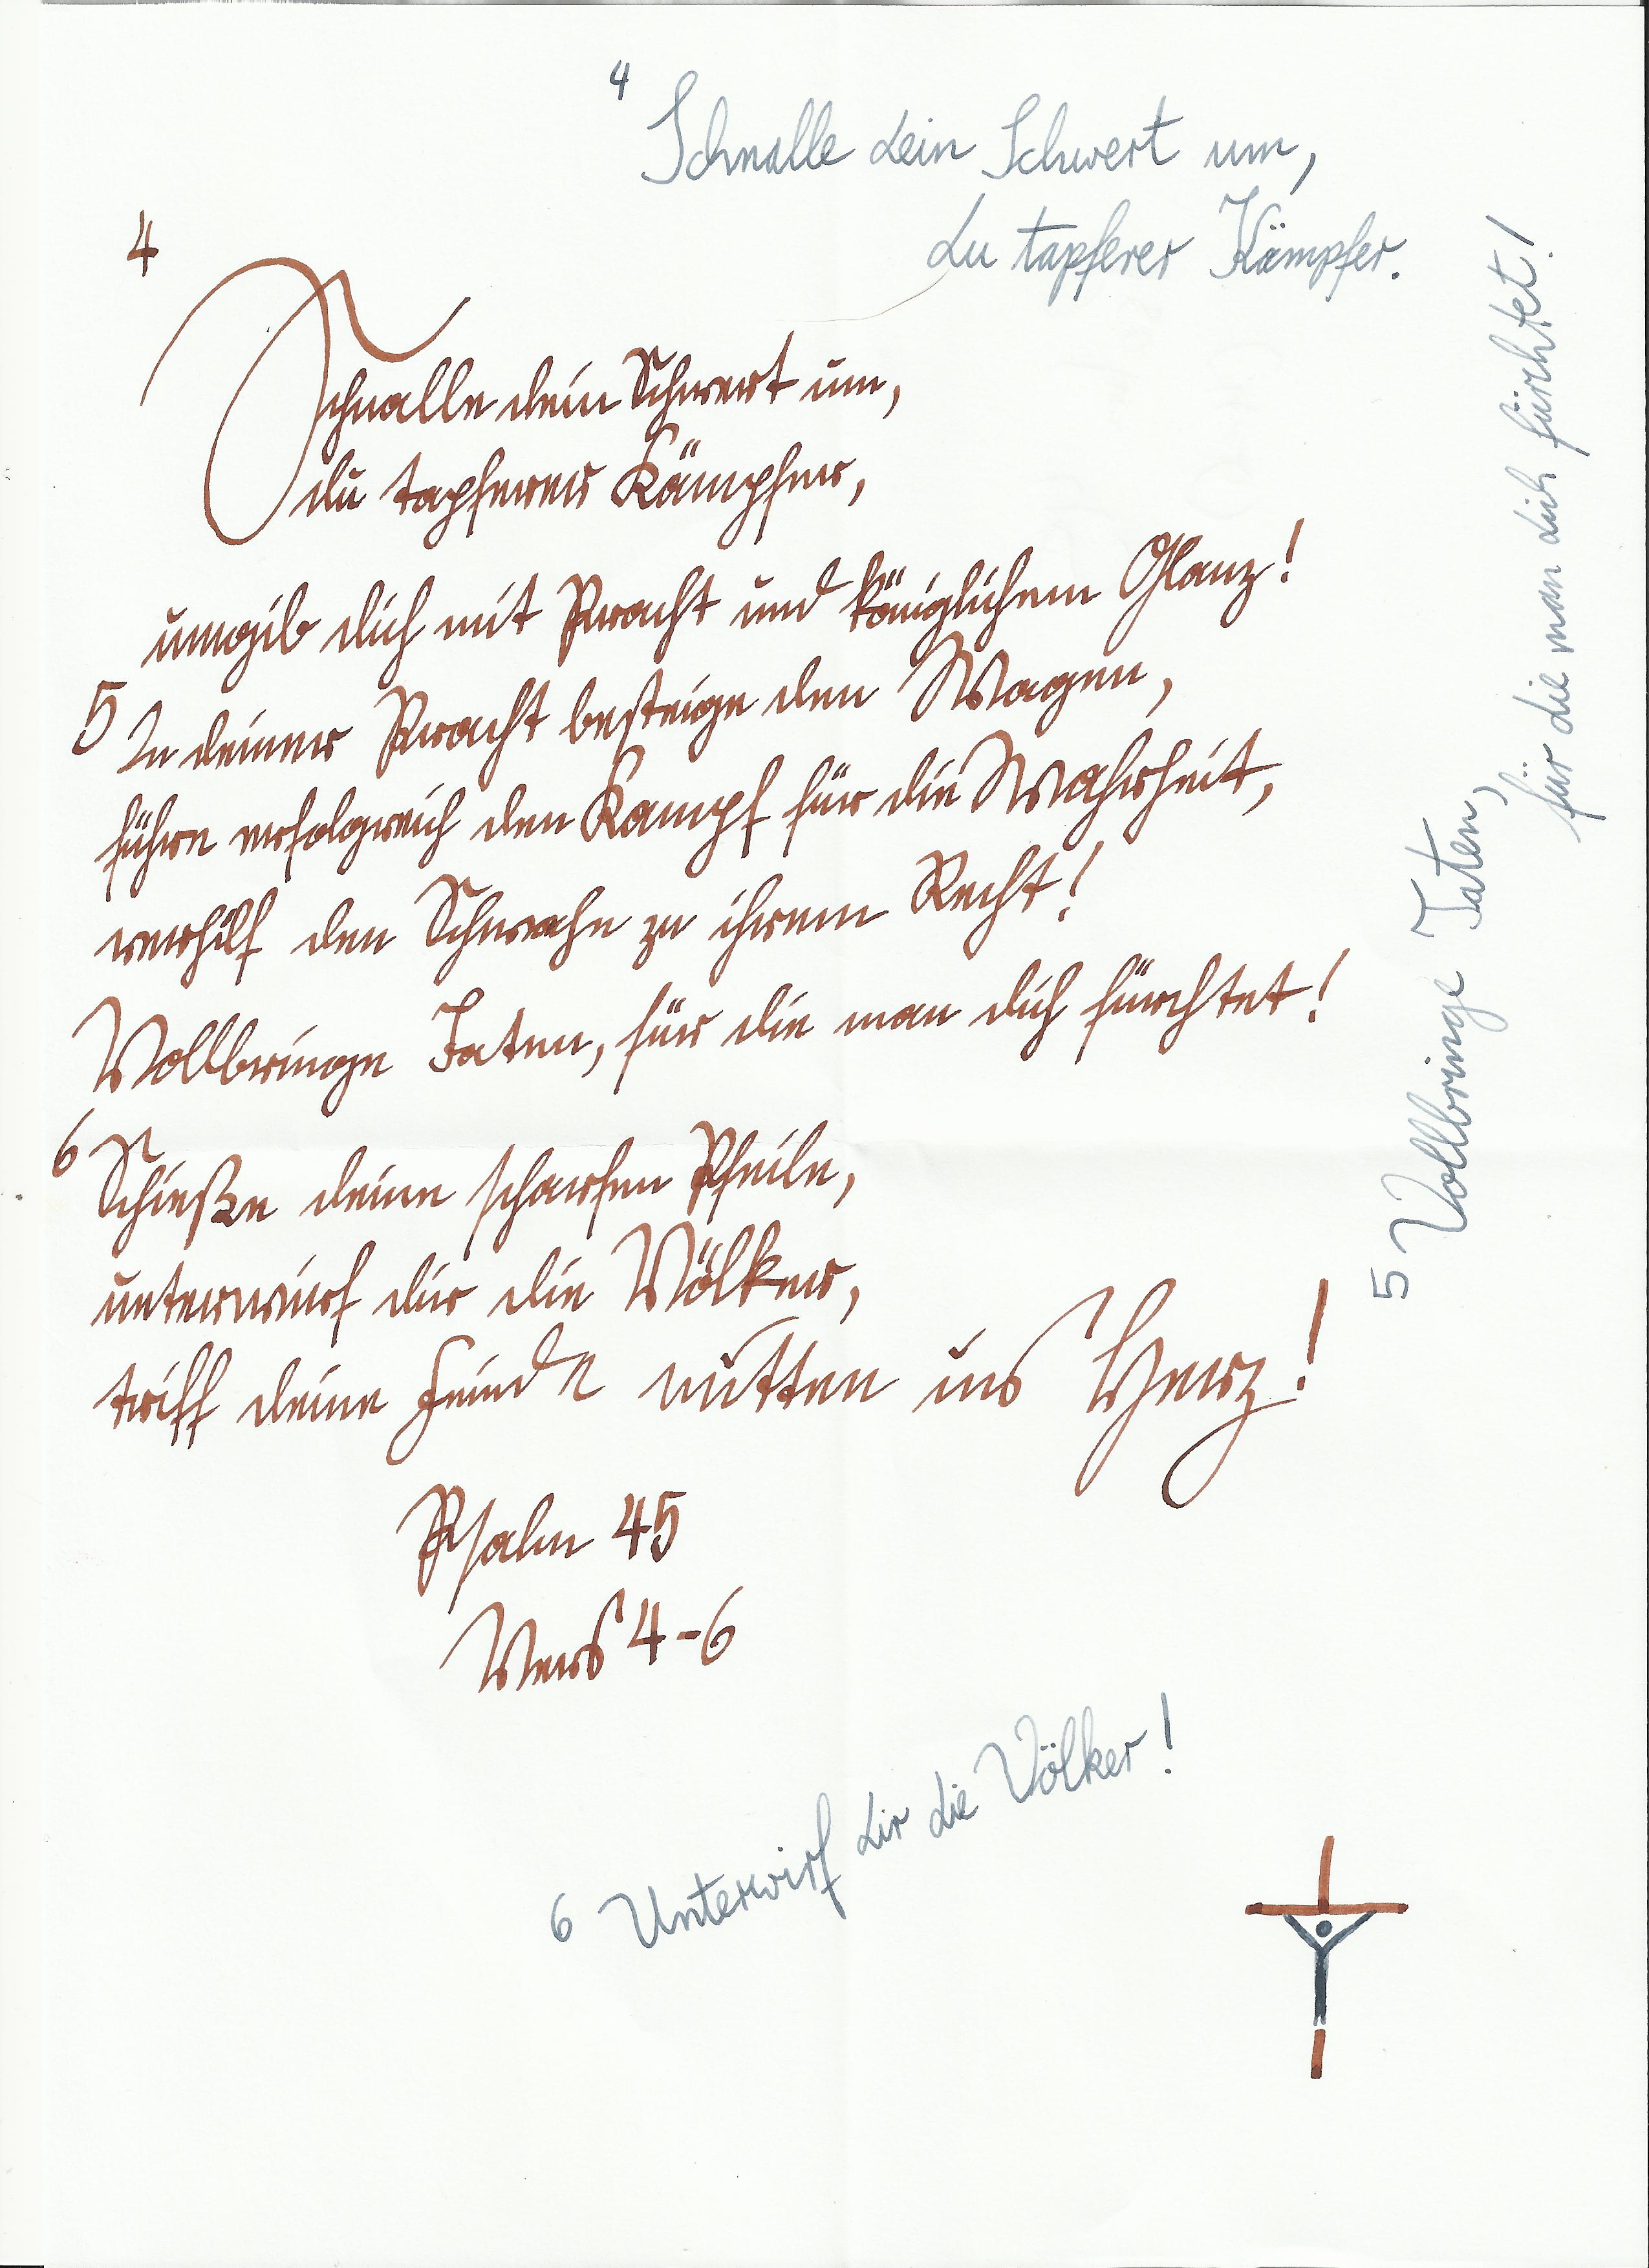 4
Schnalle dein Schwert um,
du tapferer Kämpfer.
4
Schnalle dein Schwert um,
du tapferer Kämpfer,
umgib dich mit Pracht und königlichem Glanz!
5 In deiner Pracht besteige den Wagen,
führe erfolgreich den Kampf für die Wahrheit,
verhilf den Schwache zu ihrem Recht!
Vollbringe Taten, für die man dich fürchtet!
6 Schieße deine scharfen Pfeile,
unterwirf dir die Völker,
triff deine Feinde mitten ins Herz!
Psalm 45
Vers 4-6
5 Vollbringe Taten,
für die man dich fürchtet!
6 Unterwirf dir die Völker!